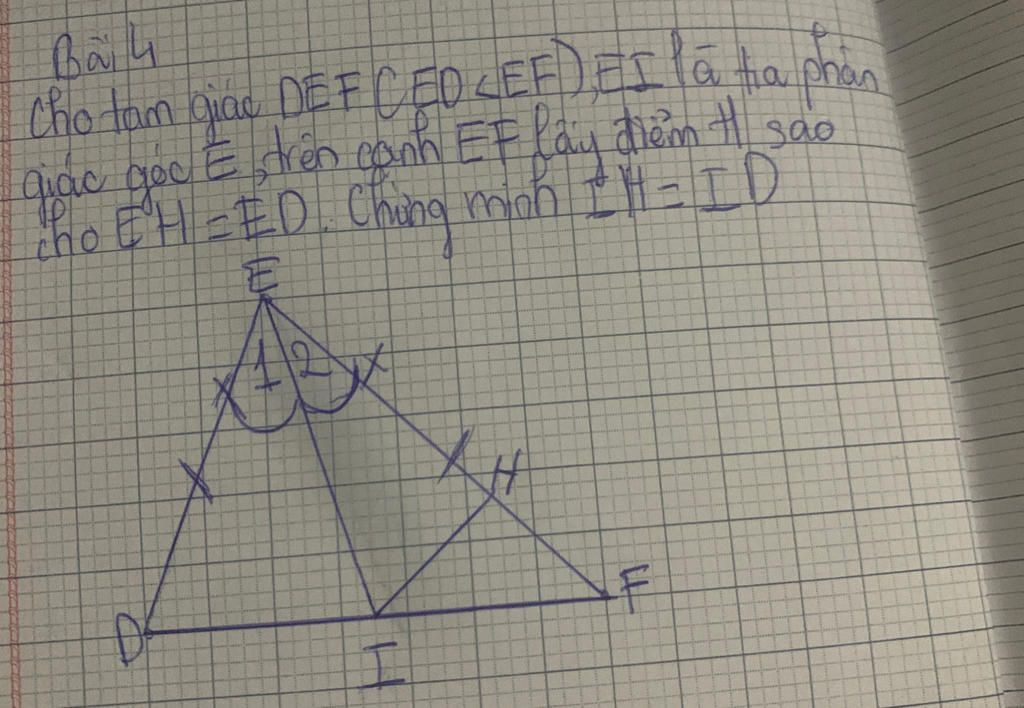 Bài 4
Cho tam giác DEF (ED < EF), EI là tia phân
giác góc E, trên cạnh EF lấy điểm H sao
cho EH = ED. Chứng minh IH = ID
E
1 2
H
F
D
I